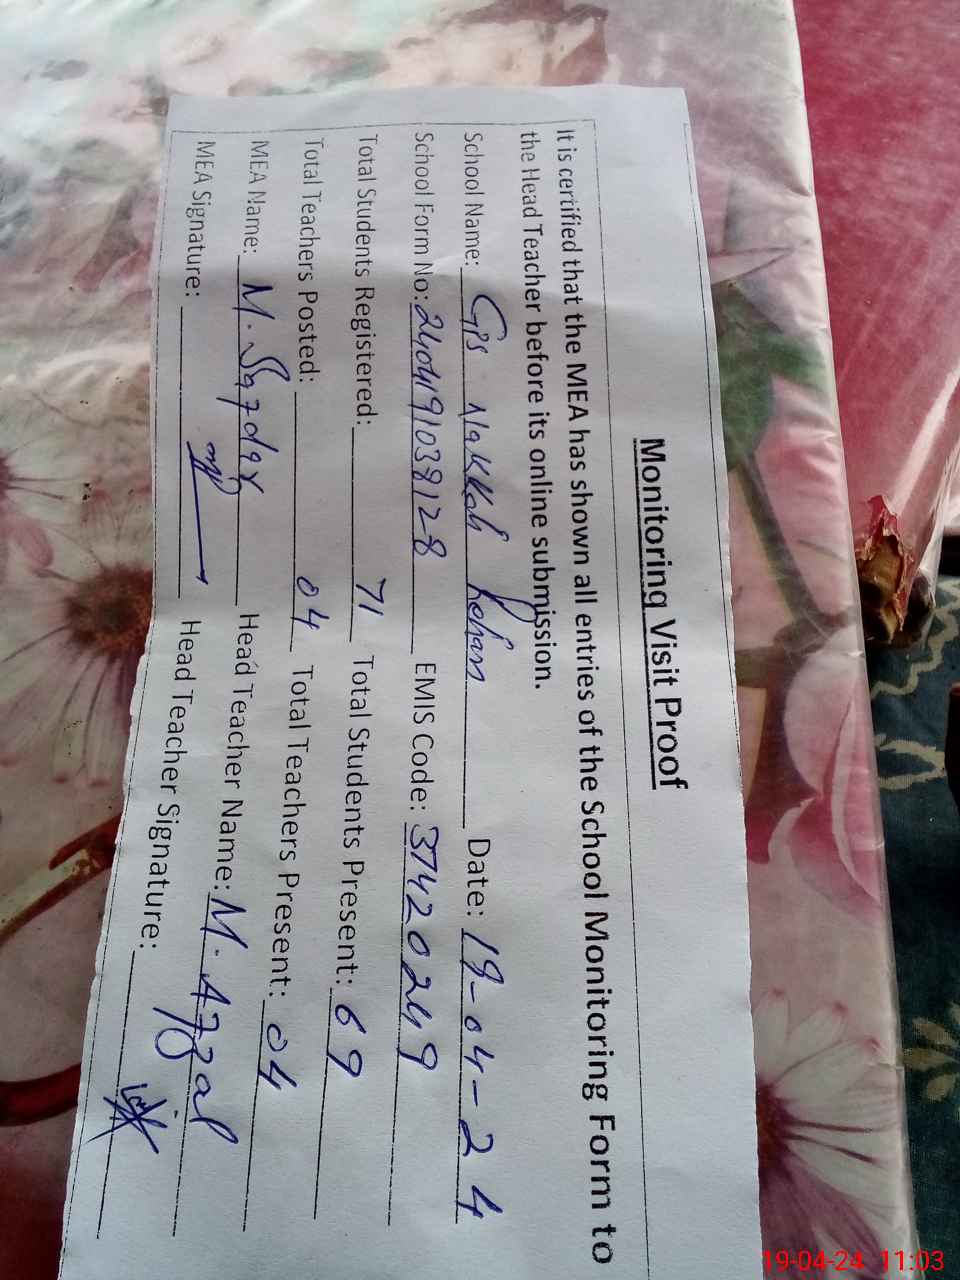 Monitoring Visit Proof
It is certified that the MEA has shown all entries of the School Monitoring Form to
the Head Teacher before its online submission.
School Name: GPS Nakkah Kohan Date: 19-04-24
School Form No: 2404191038128 EMIS Code: 37420249
Total Students Registered: 71 Total Students Present: 69
Total Teachers Posted: 04 Total Teachers Present: 04
MEA Name: M. Safdar Head Teacher Name: M. Afzal
MEA Signature: Head Teacher Signature:
19-04-24 11:03